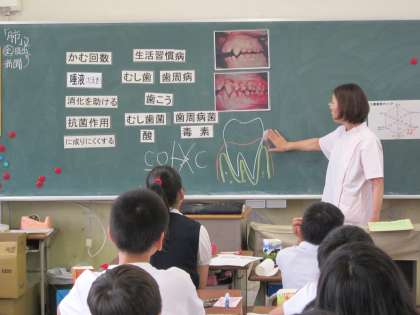 かむ回数
生活習慣病
唾液(だえき)
むし歯
歯周病
消化を助ける
歯こう
抗菌作用
むし歯菌
歯周病菌
酸
毒素
に成りにくくする
CO
C
新聞